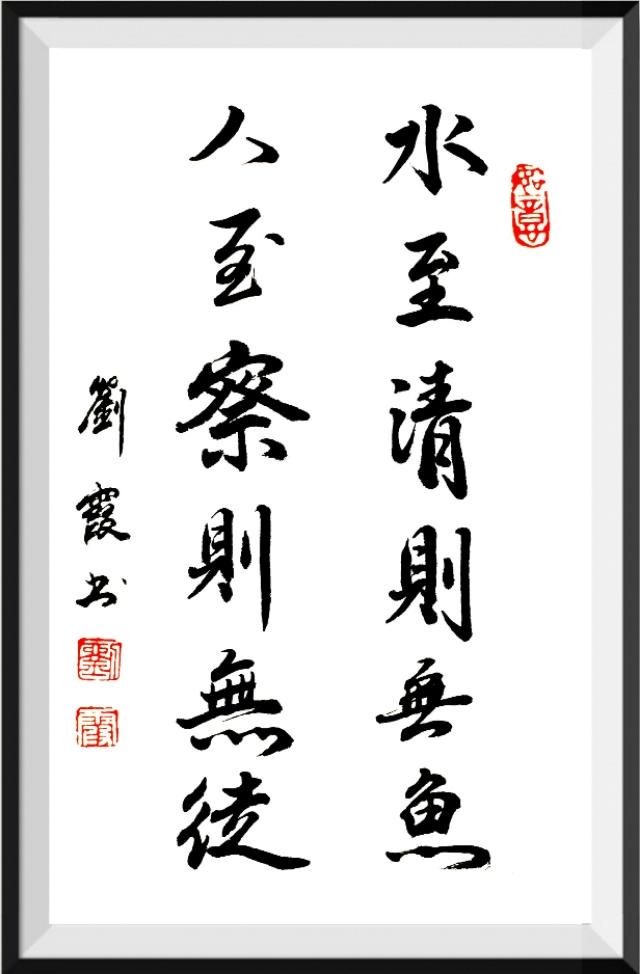 水至清則無魚
人至察則無徒
劉霞书
劉
霞